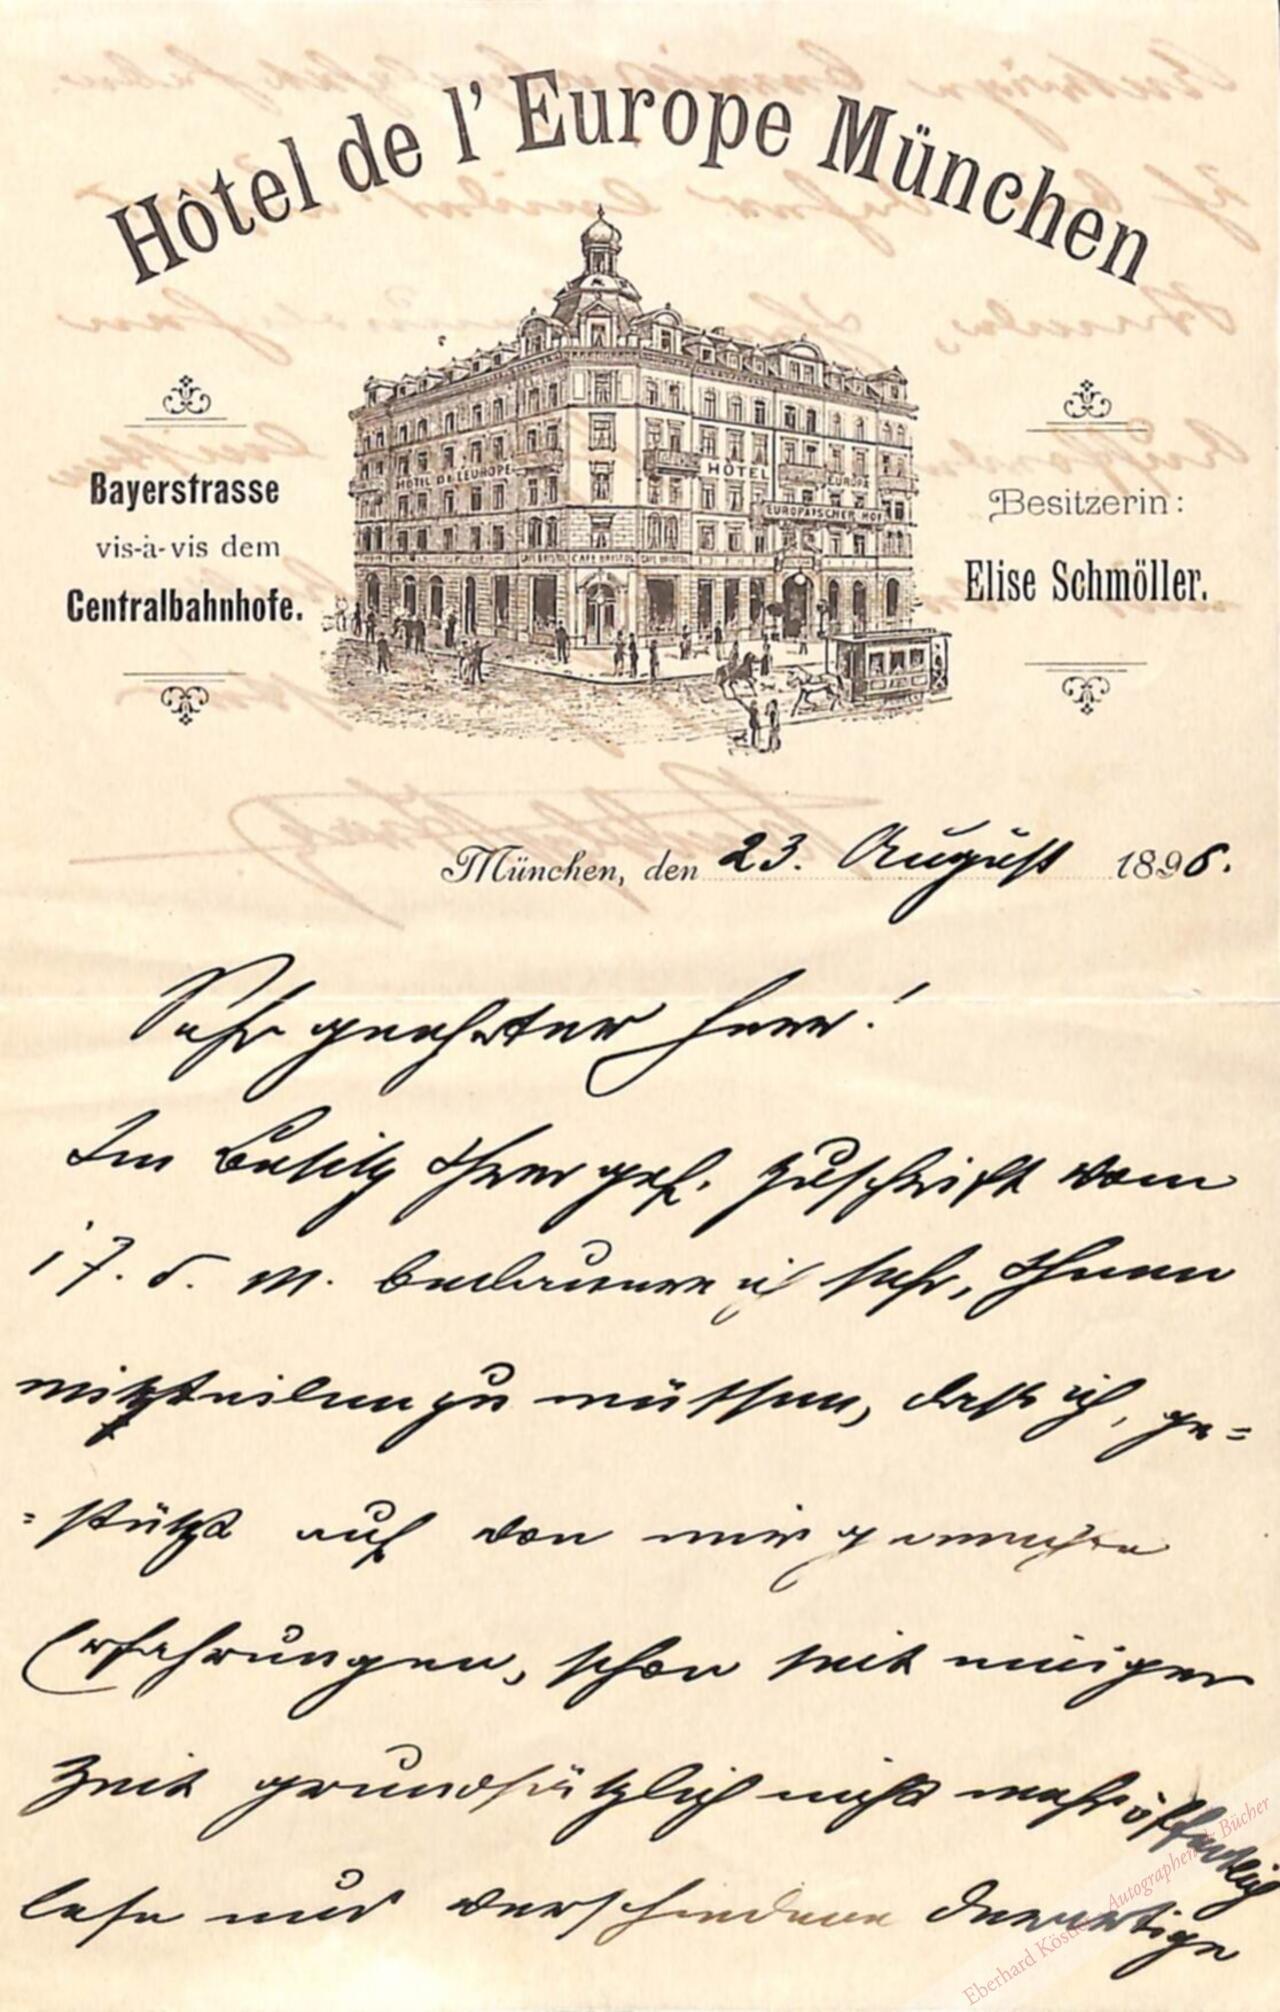 Hôtel de l'Europe München
Bayerstrasse
vis-à-vis dem
Centralbahnhofe.
HOTEL DE L'EUROPE
HÔTEL
EUROPE
EUROPÄISCHER HOF
CAFE BRISTOL CAFE BRISTOL CAFE BRISTOL
Besitzerin:
Elise Schmöller.
München, den 23. August 1896.
Sehr geehrter Herr!
Im Besitz Ihrer gef. Zuschrift vom
17. d. M. bedauere ich sehr, Ihnen
mitteilen zu müssen, dass ich, ge=
=stützt auf von mir gemachte
Erfahrungen, schon seit einiger
Zeit grundsätzlich nicht mehr öffentlich
lese und verschiedene derartige
Eberhard Köstler Autographen & Bücher